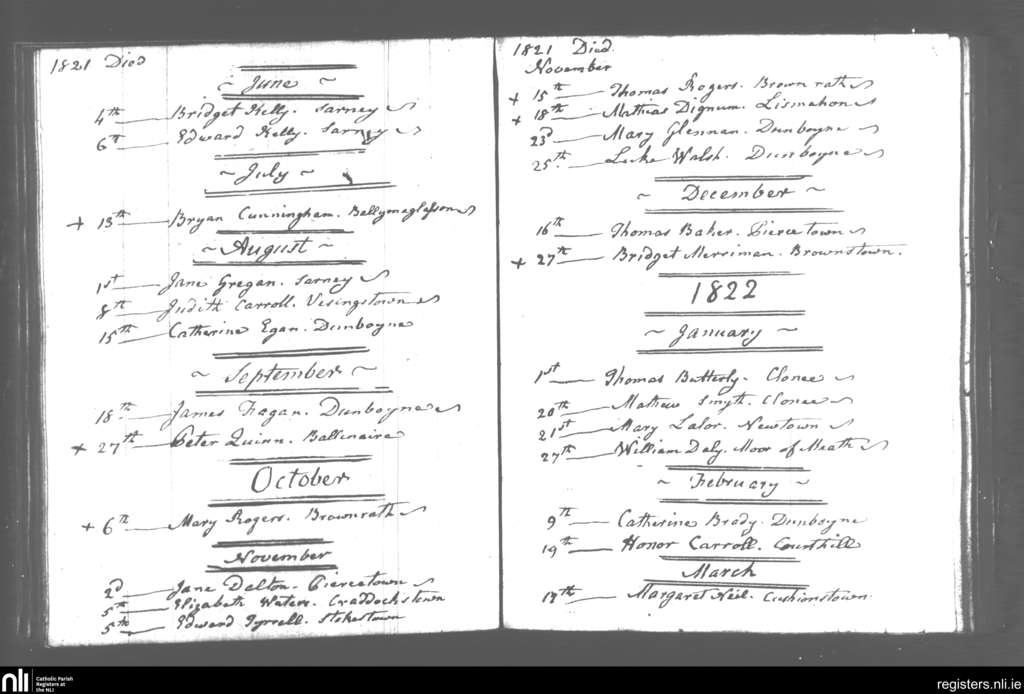 1821 Died
~ June ~
4th Bridget Kelly. Sarney
6th Edward Kelly. Sarney
~ July ~
+ 13th Bryan Cunningham. Ballymaglasson
~ August ~
1st Jane Gregan. Sarney
8th Judith Carroll. Vesingstown
15th Catherine Egan. Dunboyne
~ September ~
18th James Fagan. Dunboyne
+ 27th Peter Quinn. Ballinaire
October
+ 6th Mary Rogers. Brownrath
November
2d Jane Dalton. Piercetown
5th Elizabeth Waters. Craddockstown
5th Edward Tyrrell. Stokestown
1821 Died.
November
+ 15th Thomas Rogers. Brownrath
+ 18th Mathias Dignum. Lismahon
23d Mary Glennan. Dunboyne
25th Luke Walsh. Dunboyne
~ December ~
16th Thomas Baker. Piercetown
+ 27th Bridget Merriman. Brownstown.
1822
~ January ~
1st Thomas Butterly. Clonee
20th Mathew Smyth. Clonee
21st Mary Lalor. Newtown
27th William Daly. Moor of Meath
~ February ~
9th Catherine Brady. Dunboyne
19th Honor Carroll. Courthill
March
Margaret Neil. Cushionstown
nli Catholic Parish
Registers at
the NLI
registers.nli.ie